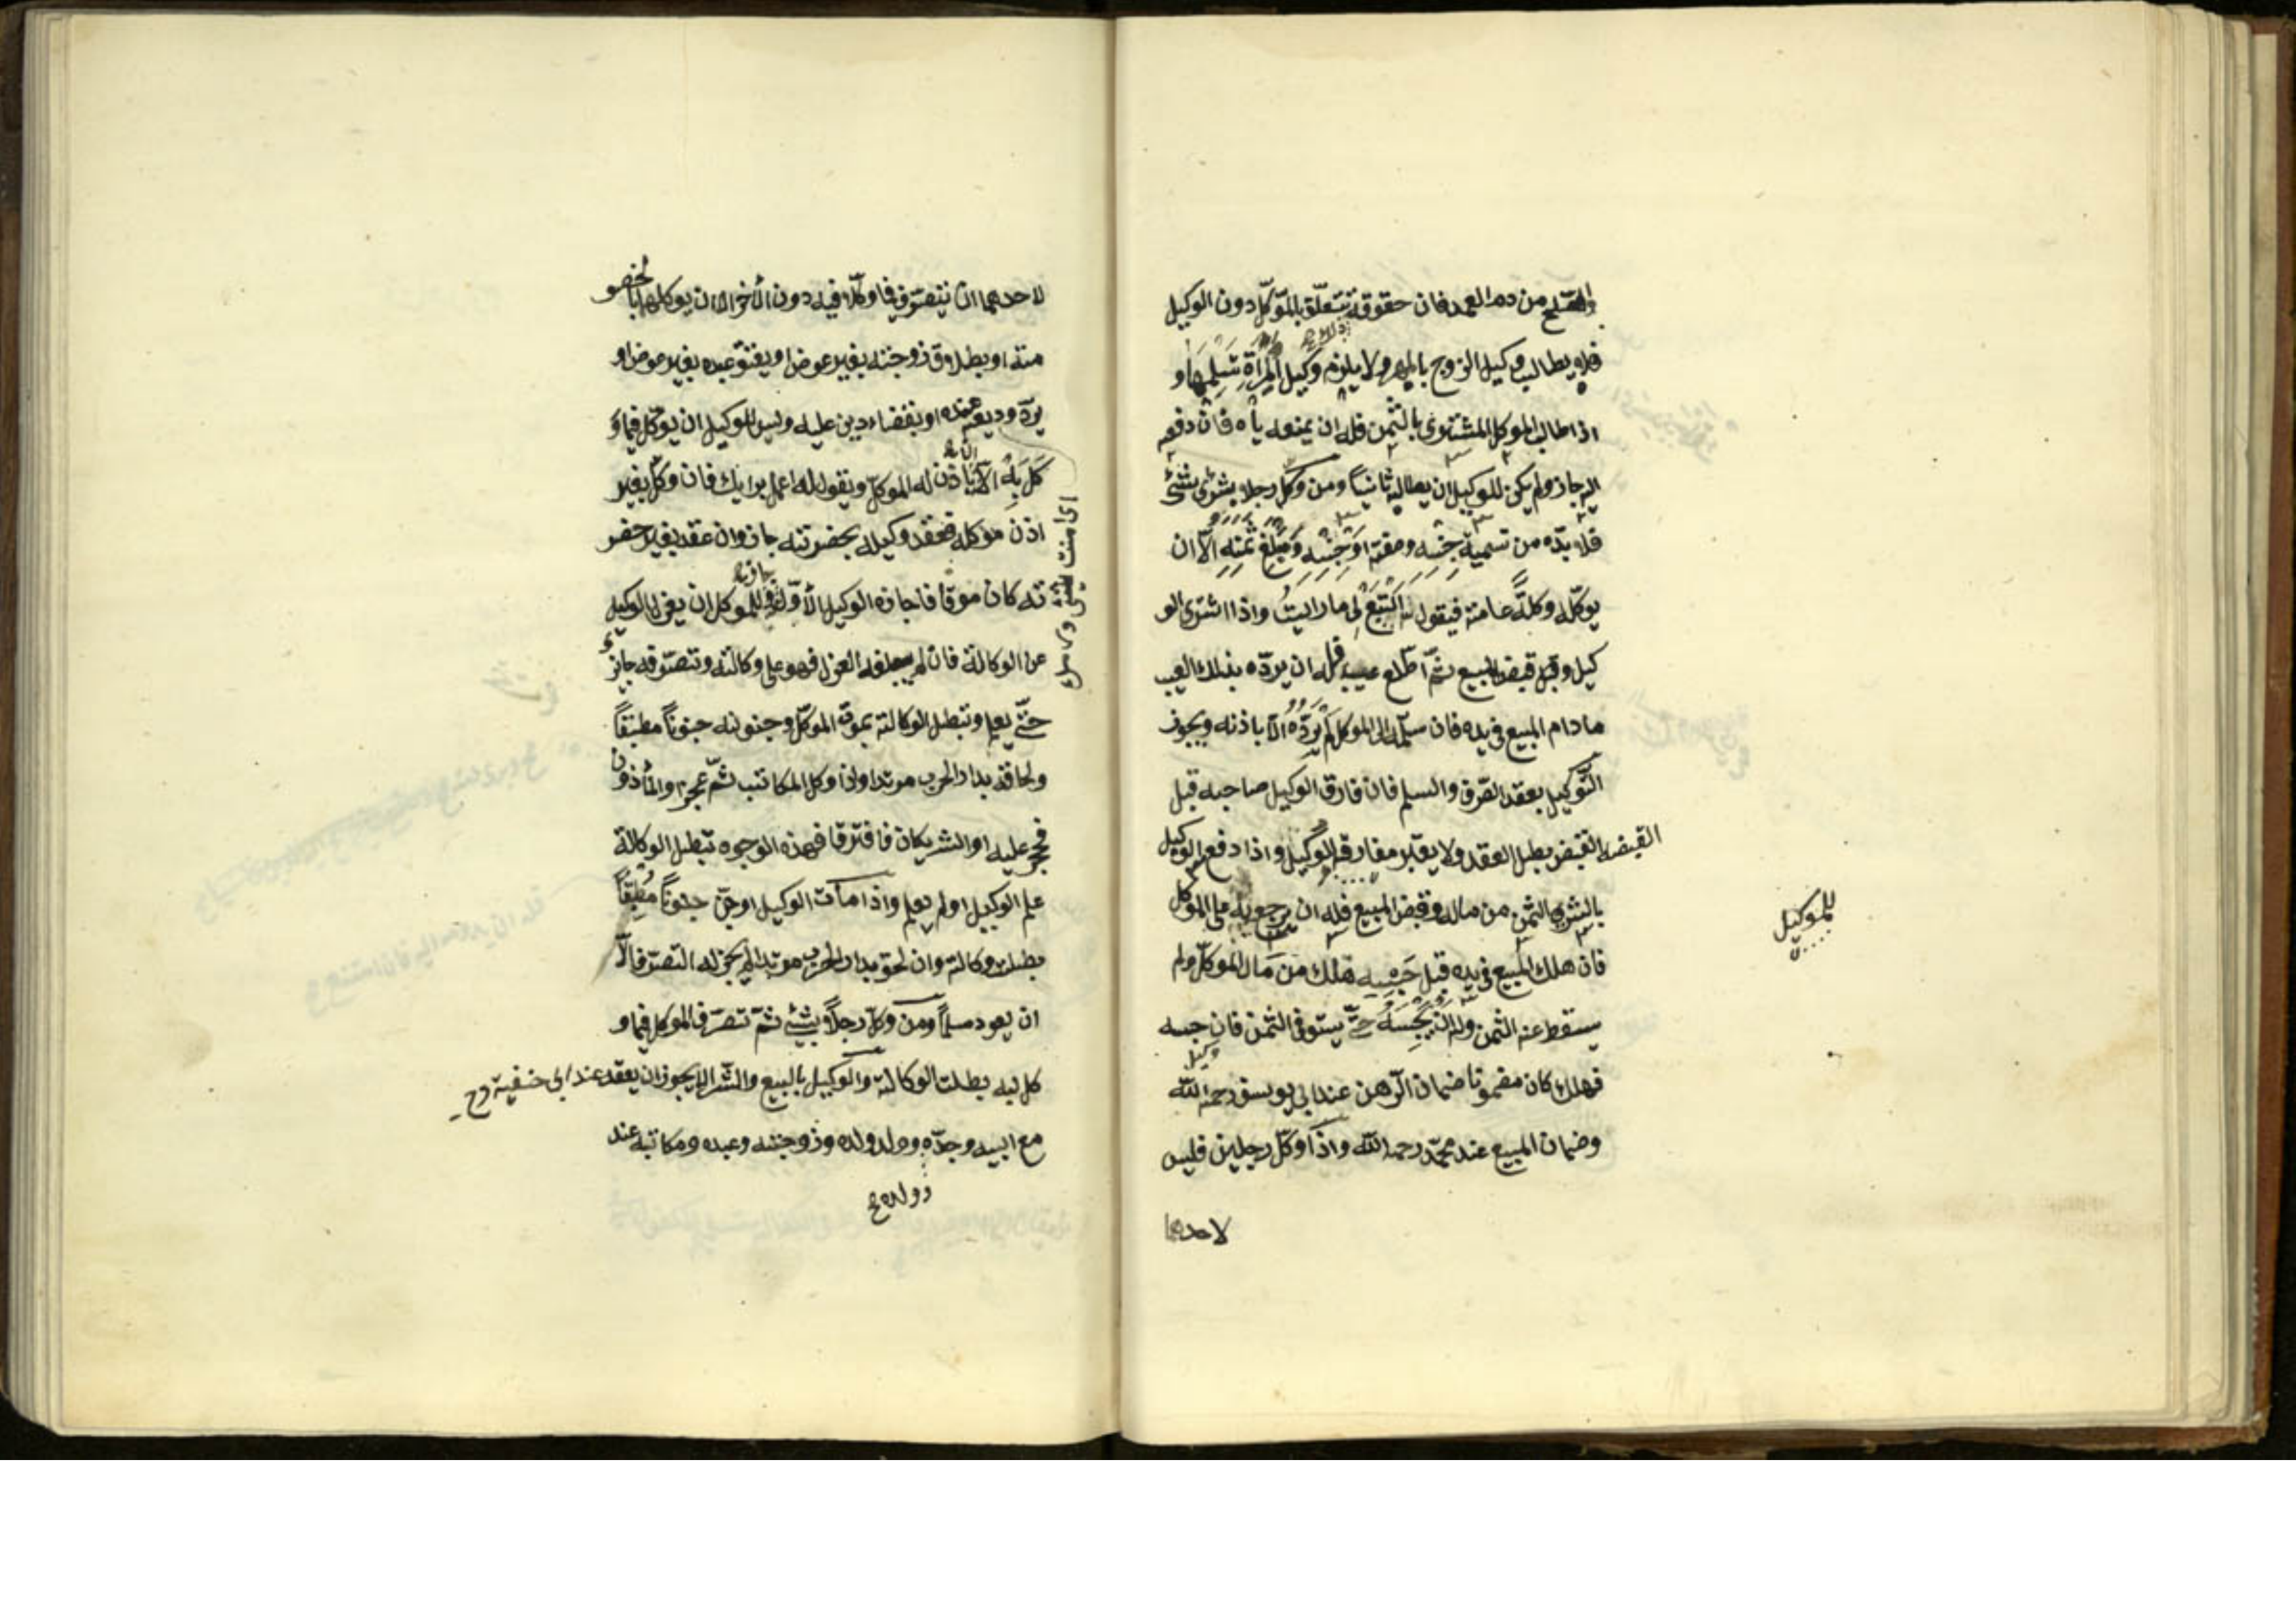 والصّلح من دم العمد فان حقوقه تتعلّق بالموكّل دون الوكيل
فلا يطالب وكيل الزوج بالمهر ولا يلزم وكيل المرأة تسليمها و
اذا طالب الموكل المشترى بالثمن فله ان يمنعه ياه فان دفعه
اليه جاز ولم يكن للوكيل ان يطالبه ثانياً ومن وكل رجلا بشرى شئ
فلا بدّه من تسمية جنسه وصفته او جنسه ومبلغ ثمنه الّا ان
يوكّله وكلة عامة فيقول له ابتع لي ما رايت واذا اشترى الو
كيل وقبل قبض المبيع ثمّ اطّلع عيب فله ان يردّه بذلك العيب
ما دام المبيع في يده فان سلّمه الى الموكل لم يردّه الّا باذنه ويجوز
التّوكيل بعقد الصّرف والسلم فان فارق الوكيل صاحبه قبل
القبض بطل العقد ولا يعتبر مفارقة الوكيل واذا دفع الوكيل
بالشرى الثمن من ماله وقبض المبيع فله ان يرجع به على الموكل
للموكيل
فان هلك المبيع في يده قبل حبسه هلك من مال الموكّل ولم
يسقط عنه الثمن وله ان يحبسه حتّى يستوفى الثمن فان حبسه
فهلك كان مضمونا ضمان الرّهن عند ابي يوسف رحمه الله
وضمان المبيع عند محمّد رحمه الله واذا وكّل رجلين فليس
لاحدهما
لاحدهما ان يتصرّف فيما وكّلا فيه دون الأخر الا ان يوكلهما بالخصو
مته او بطلاق زوجته بغير عوض او يعتق عبده بغير عوض او
يردّ وديعة عنده او بقضاء دين عليه وليس للوكيل ان يوكّل فيما و
كّل به الّا ان ياذن له الموكّل ويقول له اعمل برايك فان وكّل بغير
اذن موكله فعقد وكيله بحضرته جاز وان عقد بغير حضر
ته كان موقفا فاجازه الوكيل الأوّل جاز وللموكل ان يعزل الوكيل
عن الوكالة فان لم يبلغه العزل فهو على وكالته وتصرّفه جايز
حتّى يعلم وتبطل الوكالة بموت الموكّل وجنونه جنوناً مطبقاً
ولحاقه بدار الحرب مرتدا واذا وكل المكاتب ثمّ عجز او المأذون
فحجر عليه او الشريكان فافترقا فهذه الوجوه تبطل الوكالة
علم الوكيل او لم يعلم واذا مات الوكيل او جنّ جنوناً مطبقاً
بطلت وكالته وان لحق بدار الحرب مرتدا لم يجز له التصرّف الّا
ان يعود مسلماً ومن وكّل رجلاً بشئ ثمّ تصرّف الموكل فيما و
كل به بطلت الوكالة والوكيل بالبيع والشّراء لا يجوز ان يعقد عند ابي حنيفة رح
مع ابيه وجدّه وولد ولده وزوجته وعبده ومكاتبه عند
وولده